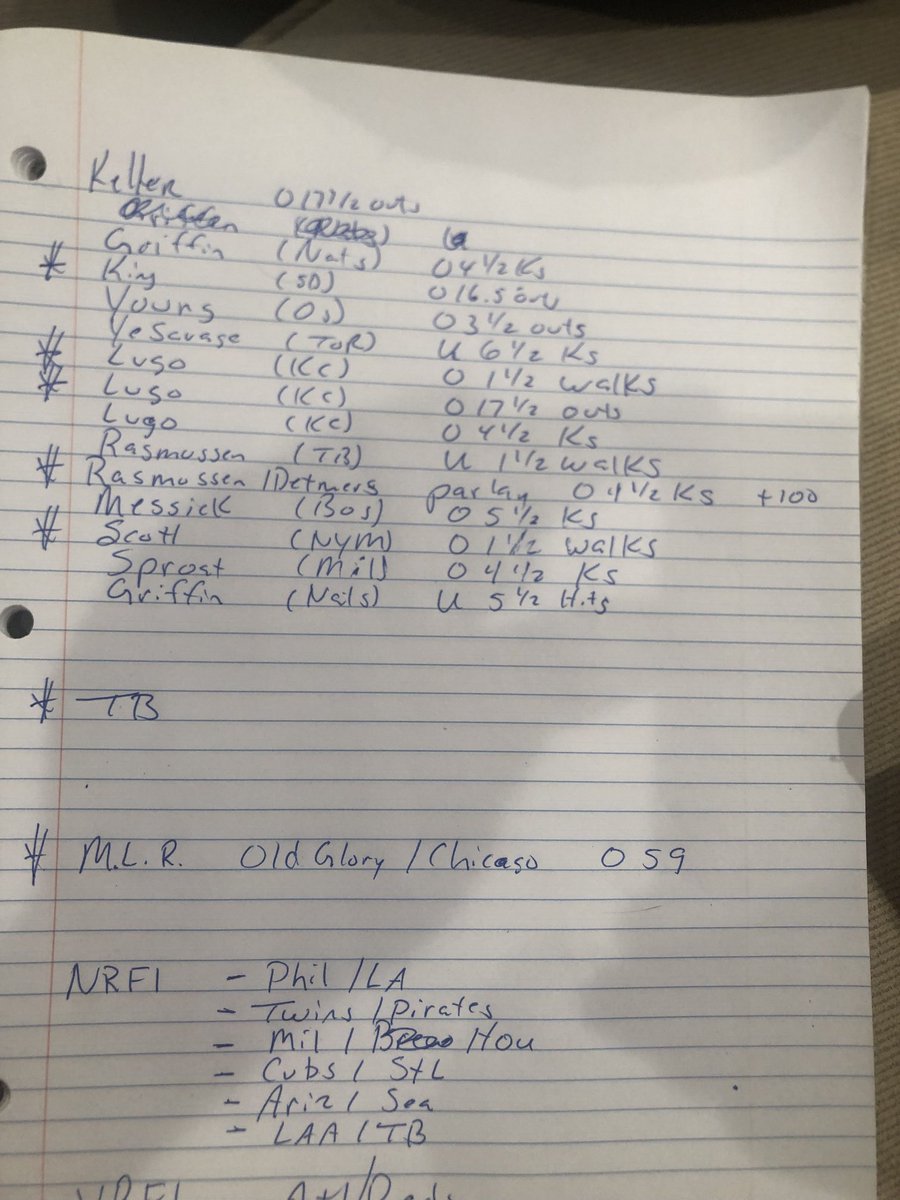 Keller O 17 1/2 outs
Griffin (Nats) O 4 1/2 Ks
* King (SD) O 16.5 outs
Young (Os) O 3 1/2 outs
Yesavage (TOR) U 6 1/2 Ks
* Lugo (KC) O 1 1/2 walks
* Lugo (KC) O 17 1/2 outs
Lugo (KC) O 4 1/2 Ks
Rasmussen (TB) U 1 1/2 walks
* Rasmussen / Detmers parlay O 4 1/2 Ks +100
Messick (Bos) O 5 1/2 Ks
* Scott (NYM) O 1 1/2 walks
Sproat (Mil) O 4 1/2 Ks
Griffin (Nats) U 5 1/2 Hits
* TB
* M.L.R. Old Glory / Chicago O 59
NRFI - Phil / LA
- Twins / Pirates
- Mil / Hou
- Cubs / StL
- Ariz / Sea
- LAA / TB